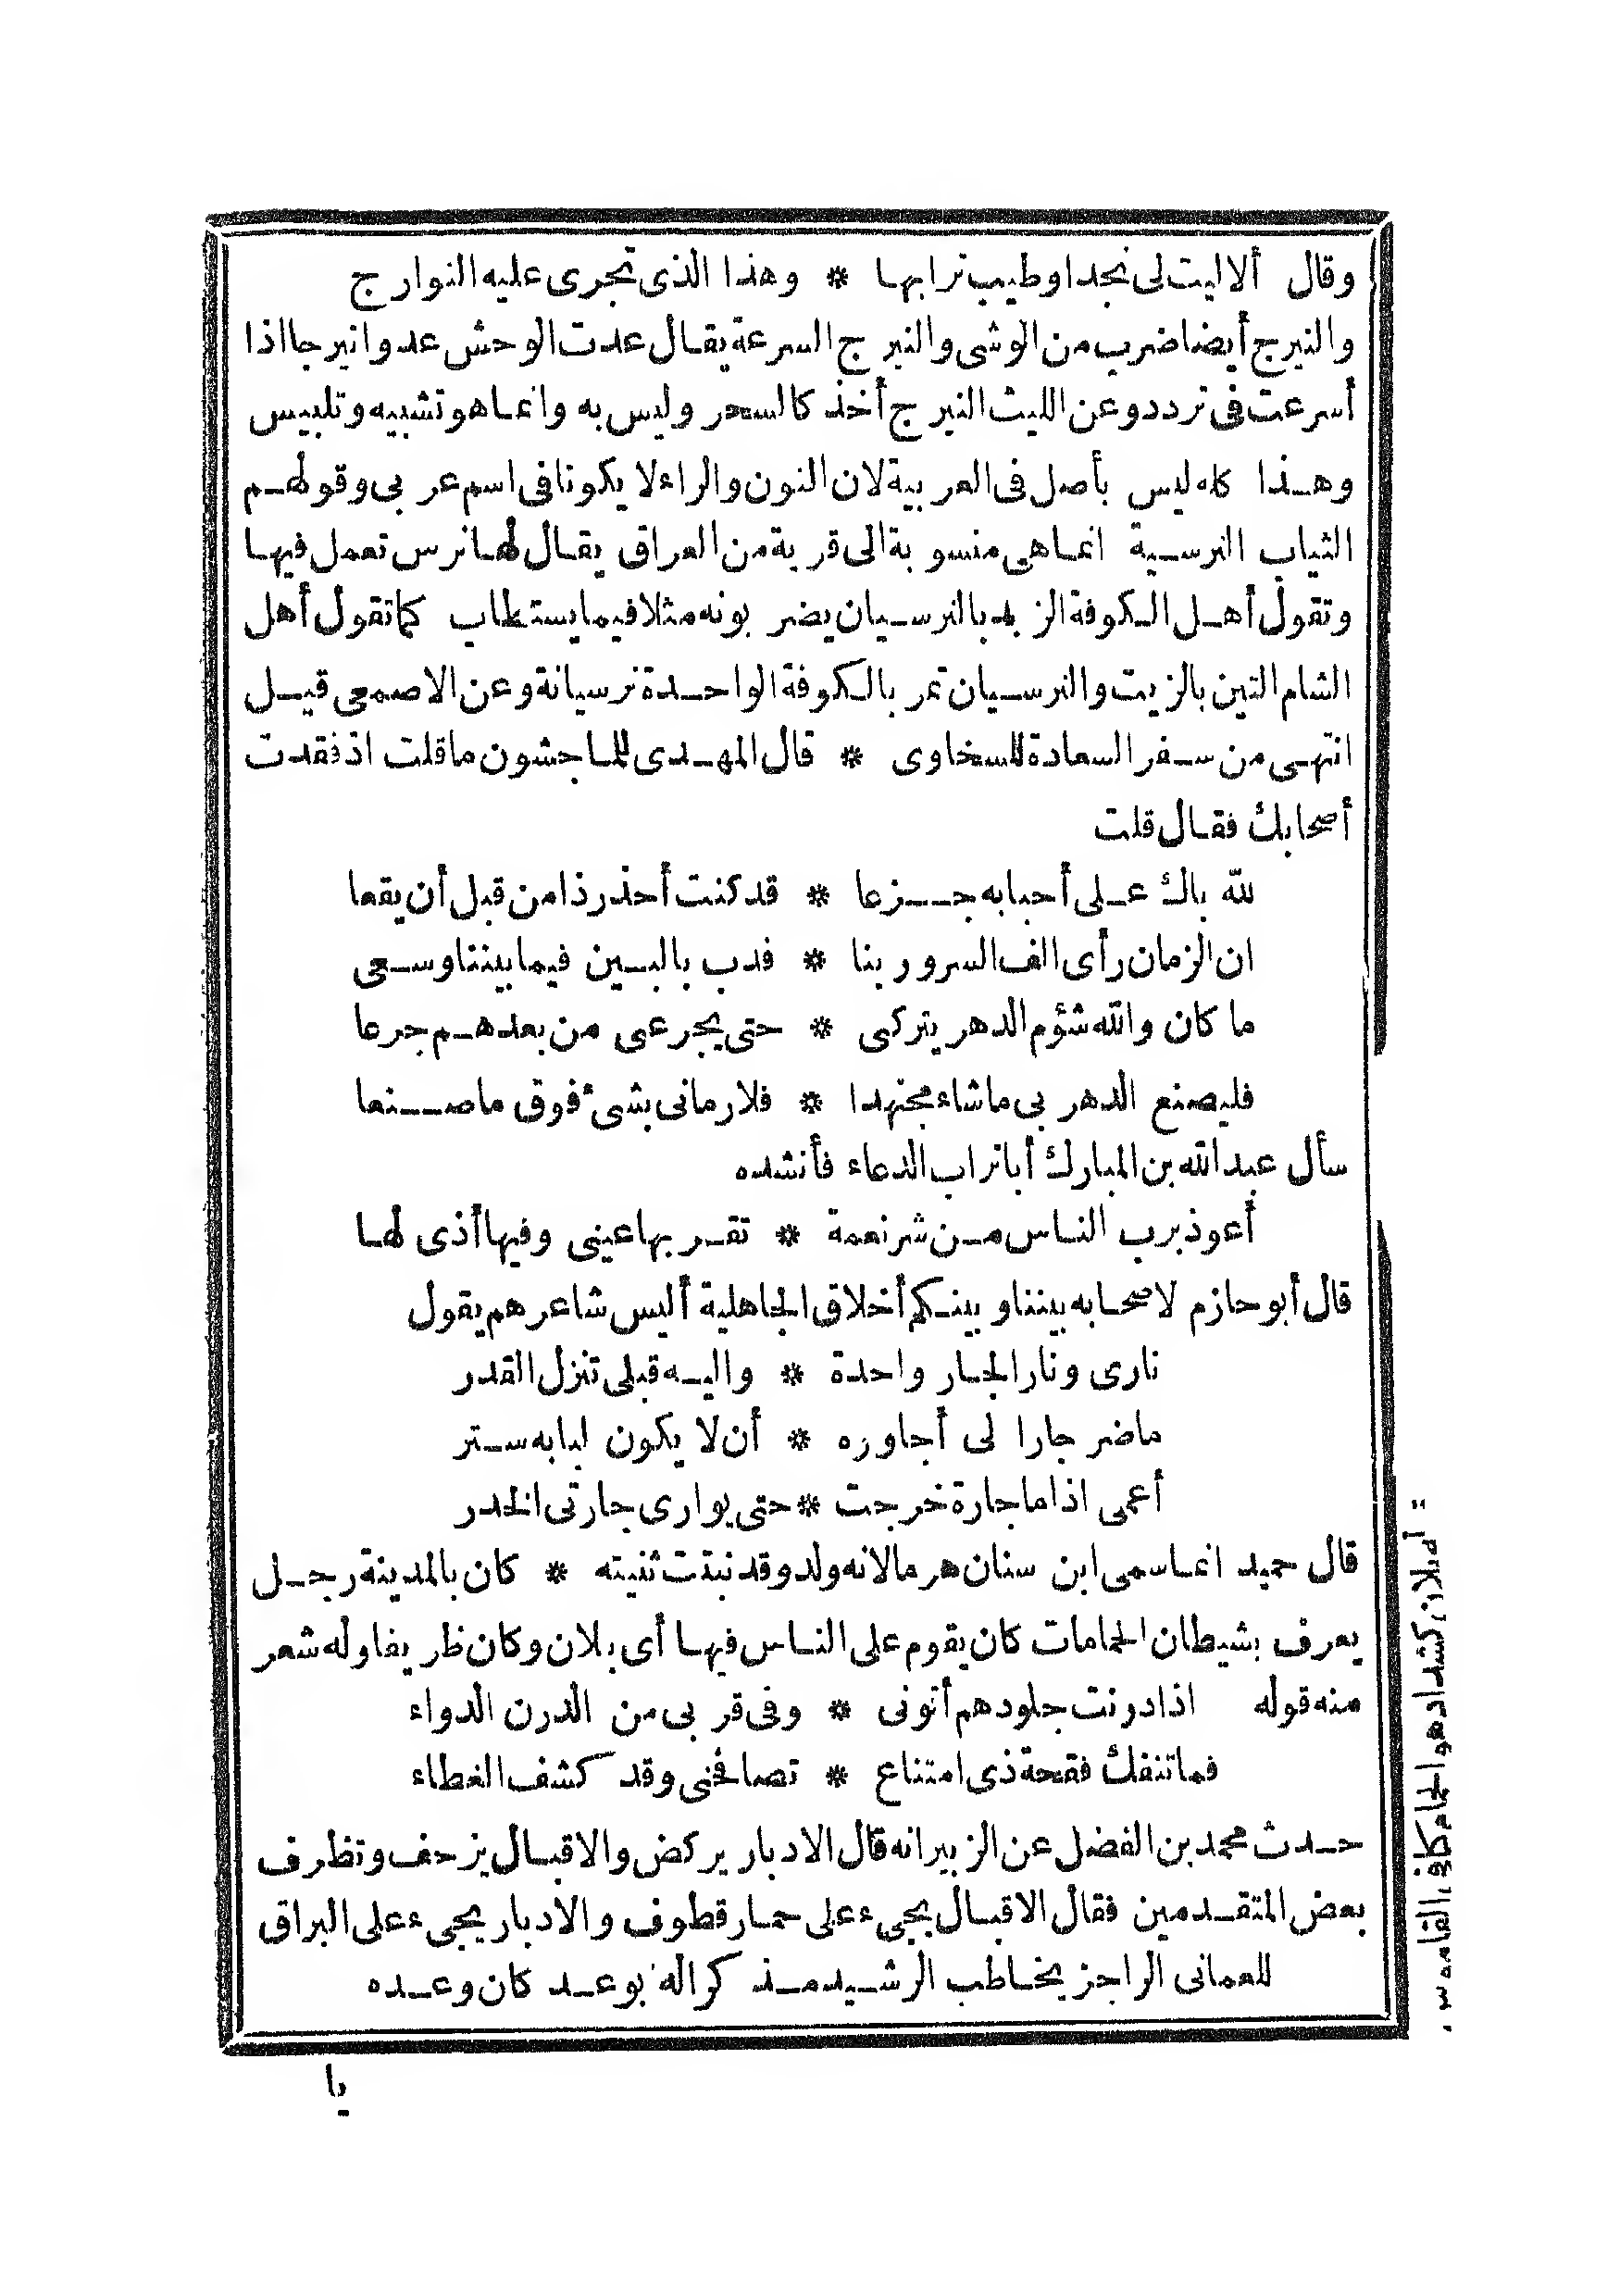 وقال ألا ليت لى نجدا وطيب ترابها * وهذا الذى تجرى عليه النوارج
والنيرج أيضا ضرب من الوشى والنيرج السرعة يقال عدت الوحش عدوا نيرجا اذا
أسرعت فى تردد وعن الليث النيرج أخذ كالسحر وليس به وانما هو تشبيه وتلبيس
وهذا كله ليس بأصل فى العربية لان النون والراء لا يكونا فى اسم عربى وقولهم
الثياب النرسية انما هى منسوبة الى قرية من العراق يقال لها نرس تعمل فيها
وتقول أهل الكوفة الزبد بالنرسيان يضربونه مثلا فيما يستطاب كما تقول أهل
الشام التين بالزيت والنرسيان تمر بالكوفة الواحدة نرسيانة وعن الاصمعى قيل
انتهى من سفر السعادة للسخاوى * قال المهدى للماجشون ما قلت اذ فقدت
أصحابك فقال قلت
لله باك على أحبابه جزعا * قد كنت أحذر ذا من قبل أن يقعا
ان الزمان رأى الف السرور بنا * فدب بالبين فيما بيننا وسعى
ما كان والله شؤم الدهر يتركى * حتى يجرعى من بعدهم جرعا
فليصنع الدهر بى ما شاء مجتهدا * فلا رمانى بشىء فوق ما صنعا
سأل عبد الله بن المبارك أبا تراب الدعاء فأنشده
أعوذ برب الناس من شر نعمة * تقر بها عينى وفيها أذى لها
قال أبو حازم لاصحابه بيننا وبينكم أخلاق الجاهلية أليس شاعرهم يقول
نارى ونار الجار واحدة * واليه قبلى تنزل القدر
ما ضر جارا لى أجاوره * أن لا يكون لبابه ستر
أعمى اذا ما جارة خرجت * حتى يوارى جارتى الخدر
قال حميد انما سمى ابن سنان هرما لانه ولد وقد نبتت ثنيته * كان بالمدينة رجل
يعرف بشيطان الحمامات كان يقوم على الناس فيها أى بلان وكان ظريفا وله شعر
منه قوله اذا درنت جلودهم أتونى * وفى قربى من الدرن الدواء
فما تنفك فقحة ذى امتناع * تصافحنى وقد كشف الغطاء
حدث محمد بن الفضل عن الزبير انه قال الادبار يركض والاقبال يزحف وتظرف
بعض المتقدمين فقال الاقبال يجىء على حمار قطوف والادبار يجىء على البراق
للعمانى الراجز يخاطب الرشيد مذكرا له بوعد كان وعده
يا
بلان كشداد هو الحمام كما فى القاموس